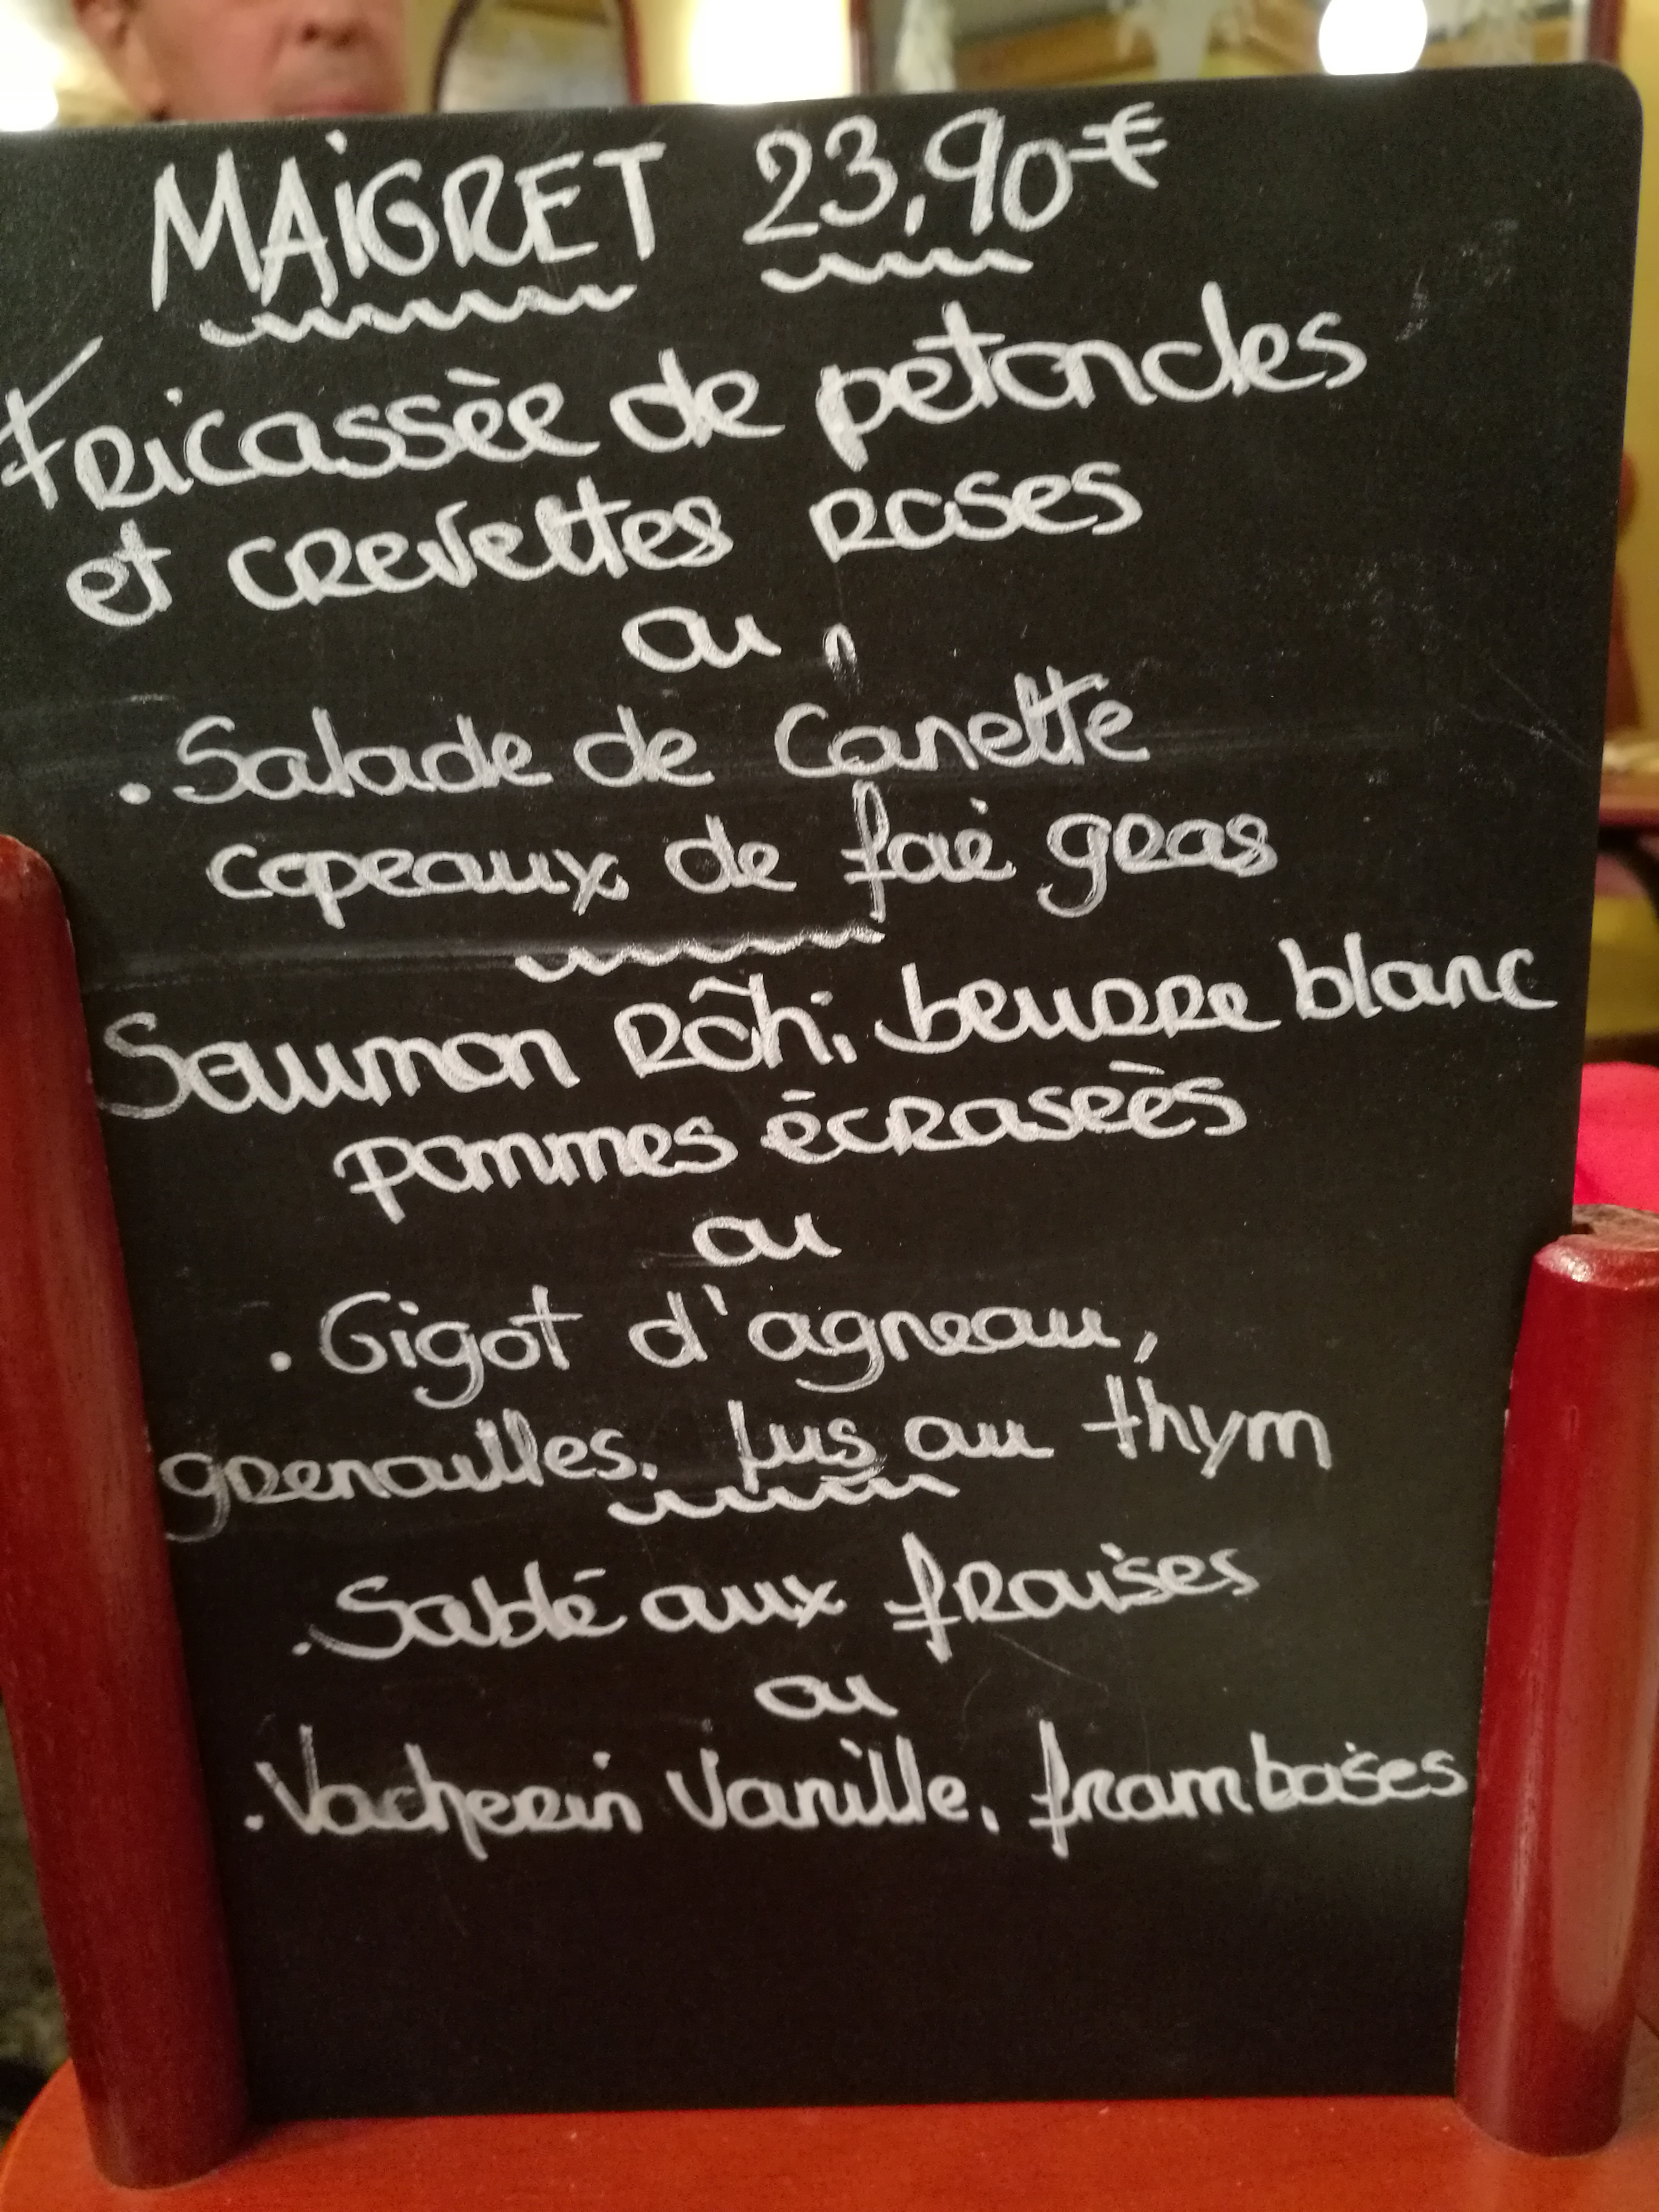 MAiGRET 23,90€
Fricassèe de petoncles
et crevettes roses
ou
. Salade de Canette
copeaux de foie gras
Saumon Rôti, beurre blanc
pommes ècraseès
ou
. Gigot d'agneau,
grenailles, Jus au thym
. Sablé aux fraises
ou
. Vacherin Vanille, framboises